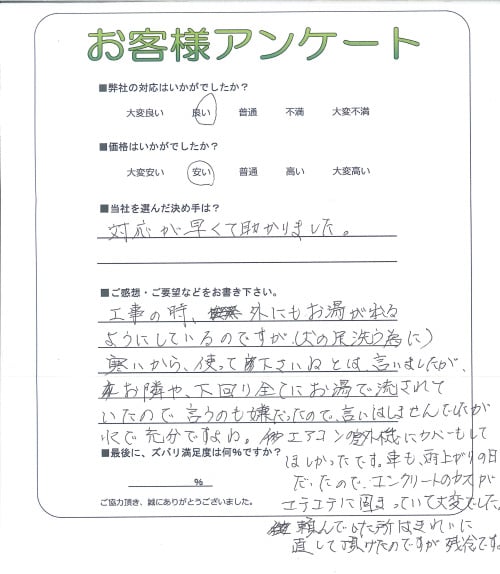 お客様アンケート
■弊社の対応はいかがでしたか？
大変良い 良い 普通 不満 大変不満
■価格はいかがでしたか？
大変安い 安い 普通 高い 大変高い
■当社を選んだ決め手は？
対応が早くて助かりました。
■ご感想・ご要望などをお書き下さい。
工事の時、外にもお湯が出る
ようにしているのですが（犬の足洗う為に）
寒いから、使って下さいねとは、言いましたが、
お隣や、下回り全てにお湯で流されて
いたので言うのも嫌だったので、言いはしませんでしたが
水で充分ですよね。他エアコンの室外機にカバーもして
■最後に、ズバリ満足度は何%ですか？
ほしかったです。車も、雨上がりの日
だったので、コンクリートのカスが
%
エテエテに固まっていて大変でした。
ご協力頂き、誠にありがとうございました。
頼んでいた所はきれいに
直して頂けたのですが残念です。